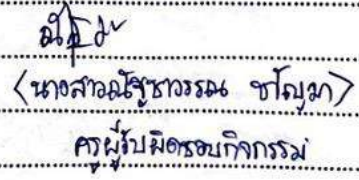 (นางสาวณัฐชาวรรณ ชาญมา)
ครูผู้รับผิดชอบกิจกรรม